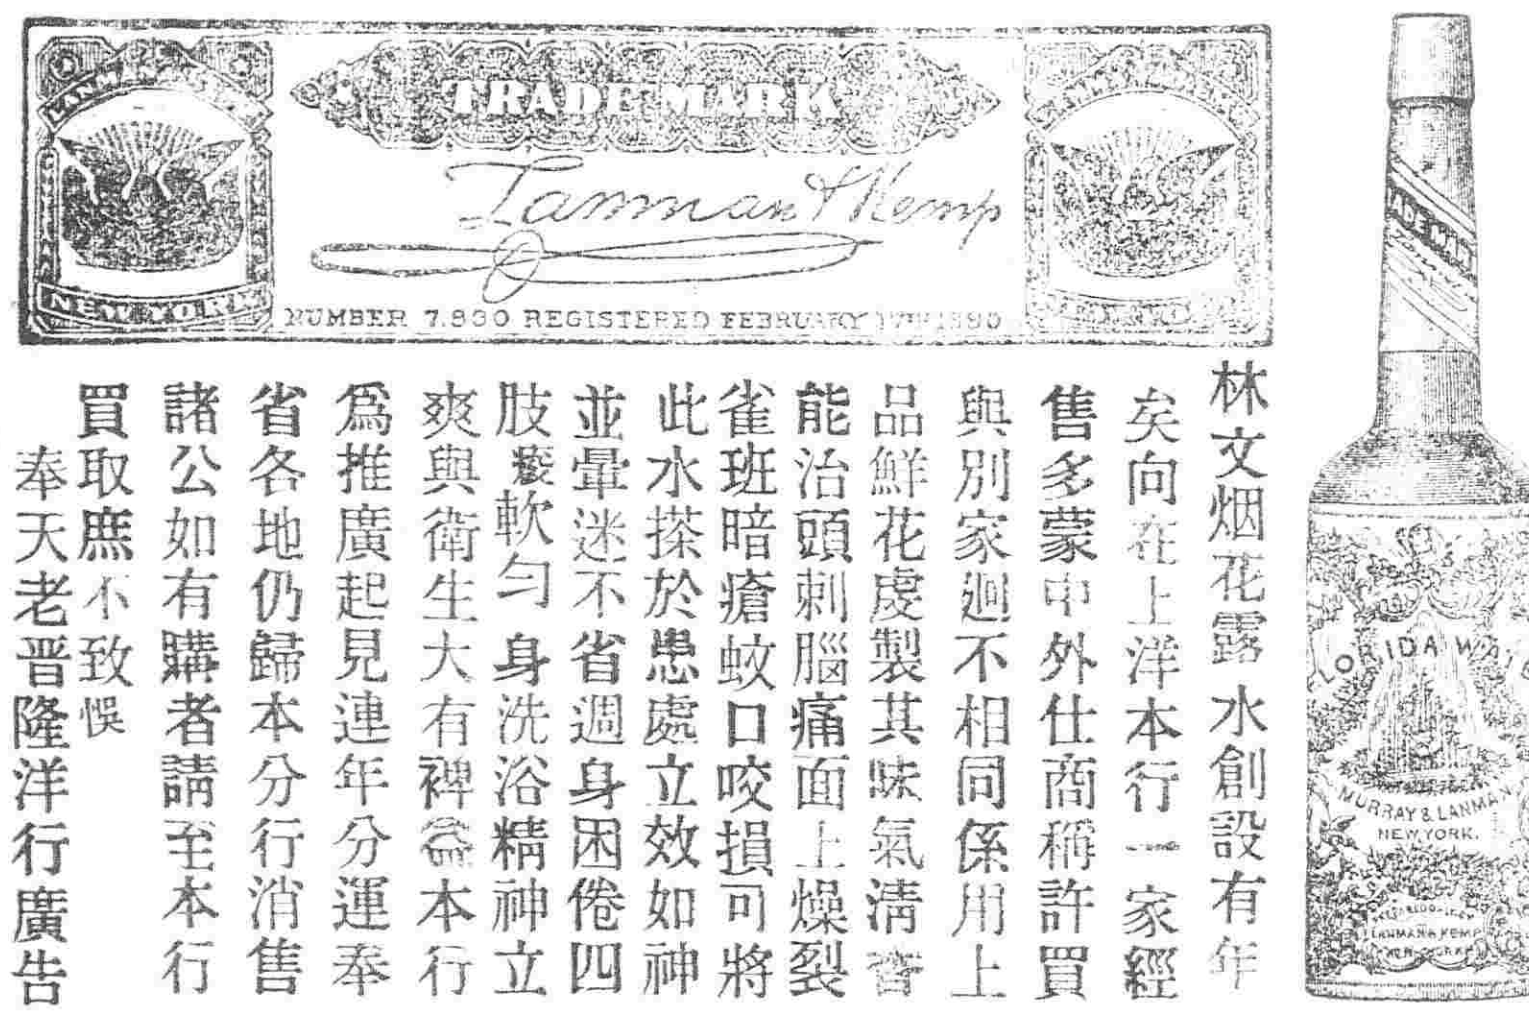 TRADE MARK
Lanman & Kemp
NEW YORK
NUMBER 7.880 REGISTERED FEBRUARY 17TH 1880
林文烟花露水創設有年
矣向在上洋本行一家經
售多蒙中外仕商稱許買
與別家迥不相同係用上
品鮮花虔製其味氣清香
能治頭刺腦痛面上燥裂
雀班暗瘡蚊口咬損可將
此水搽於患處立效如神
並暈迷不省週身困倦四
肢痠軟勻身洗浴精神立
爽與衛生大有裨益本行
爲推廣起見連年分運奉
省各地仍歸本分行消售
諸公如有購者請至本行
買取庶不致悞
奉天老晋隆洋行廣告
ADE MAR
ORIDA WATE
MURRAY & LANMAN
NEW YORK.
LANMAN & KEMP